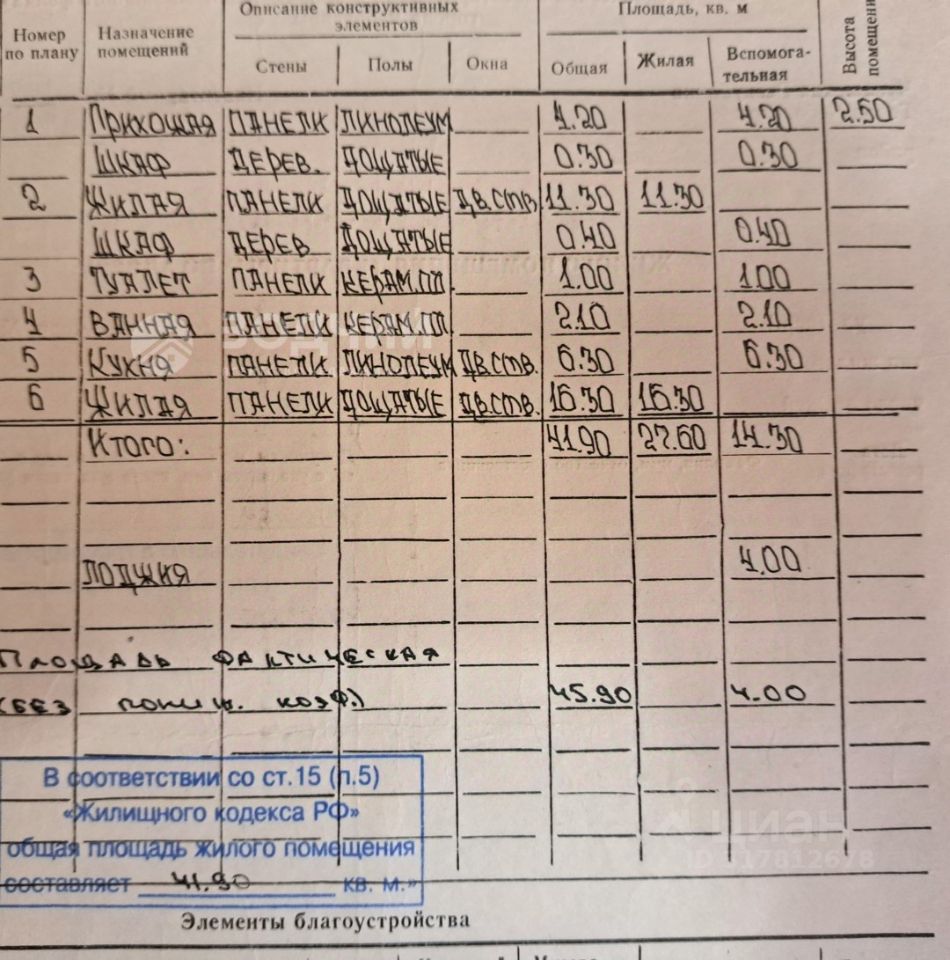 Номер по плану Назначение помещений Описание конструктивных элементов Площадь, кв. м Высота помещени
Стены Полы Окна Общая Жилая Вспомога-тельная
1 Прихожая ПАНЕЛИ ЛИНОЛЕУМ 4.20 4.20 2.50
ШКАФ ДЕРЕВ. ДОЩАТЫЕ 0.30 0.30
2 ЖИЛАЯ ПАНЕЛИ ДОЩАТЫЕ ДВ.СТВ 11.30 11.30
ШКАФ ДЕРЕВ ДОЩАТЫЕ 0.40 0.40
3 ТУАЛЕТ ПАНЕЛИ КЕРАМ.ПЛ. 1.00 1.00
4 ВАННАЯ ПАНЕЛИ КЕРАМ.ПЛ. 2.10 2.10
5 КУХНЯ ПАНЕЛИ ЛИНОЛЕУМ ДВ.СТВ. 6.30 6.30
6 ЖИЛАЯ ПАНЕЛИ ДОЩАТЫЕ ДВ.СТВ. 16.30 16.30
Итого: 41.90 27.60 14.30
ЛОДЖИЯ 4.00
ПЛОЩАДЬ ФАКТИЧЕСКАЯ
(БЕЗ пониж. коэф.) 45.90 4.00
В соответствии со ст.15 (п.5)
«Жилищного кодекса РФ»
общая площадь жилого помещения
составляет 41.90 кв. м.»
циан
Элементы благоустройства